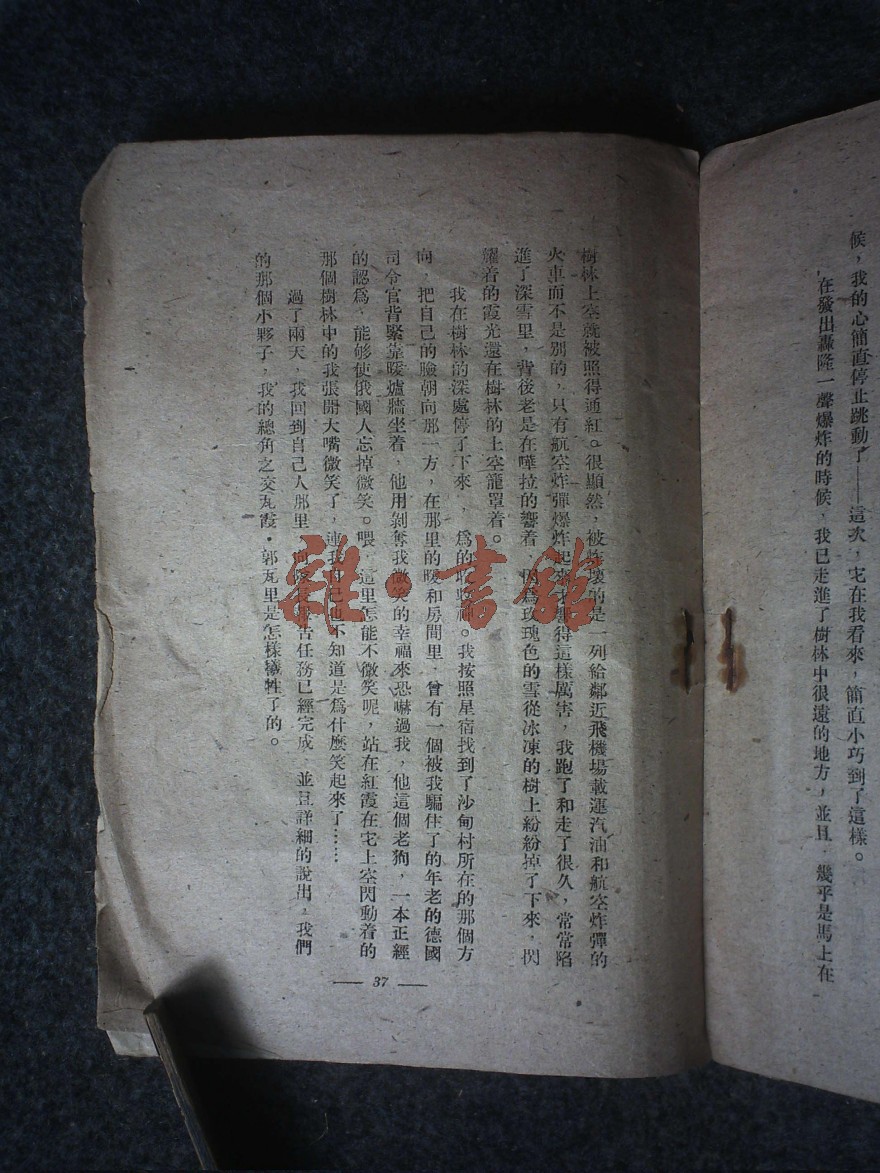 候，我的心簡直停止跳動了——這次，它在我看來，簡直小巧到了這樣。
在發出轟隆一聲爆炸的時候，我已走進了樹林中很遠的地方，並且，幾乎是馬上在
樹林上空就被照得通紅。很顯然，被炸壞的是一列給鄰近飛機場載運汽油和航空炸彈的
火車而不是別的，只有航空炸彈爆炸起來才響得這樣厲害，我跑了和走了很久，常常陷
進了深雪里，背後老是在嘩拉的響着，因為玫瑰色的雪從冰凍的樹上紛紛掉了下來，閃
耀着的霞光還在樹林的上空籠罩着。
我在樹林的深處停了下來，爲的收收神。我按照星宿找到了沙甸村所在的那個方
向，把自己的臉朝向那一方，在那里的暖和房間里，曾有一個被我騙住了的年老的德國
司令官背緊靠暖爐牆坐着，他用剝奪我微笑的幸福來恐嚇過我，他這個老狗，一本正經
的認爲，能够使俄國人忘掉微笑。喂，這里怎能不微笑呢，站在紅霞在它上空閃動着的
那個樹林中的我張開大嘴微笑了，連我自己也不知道是爲什麽笑起來了……
過了兩天，我回到自己人那里，向隊長報告任務已經完成，並且詳細的說出，我們
的那個小夥子，我的總角之交瓦霞·郭瓦里是怎樣犧牲了的。
— 37 —
雜·書館